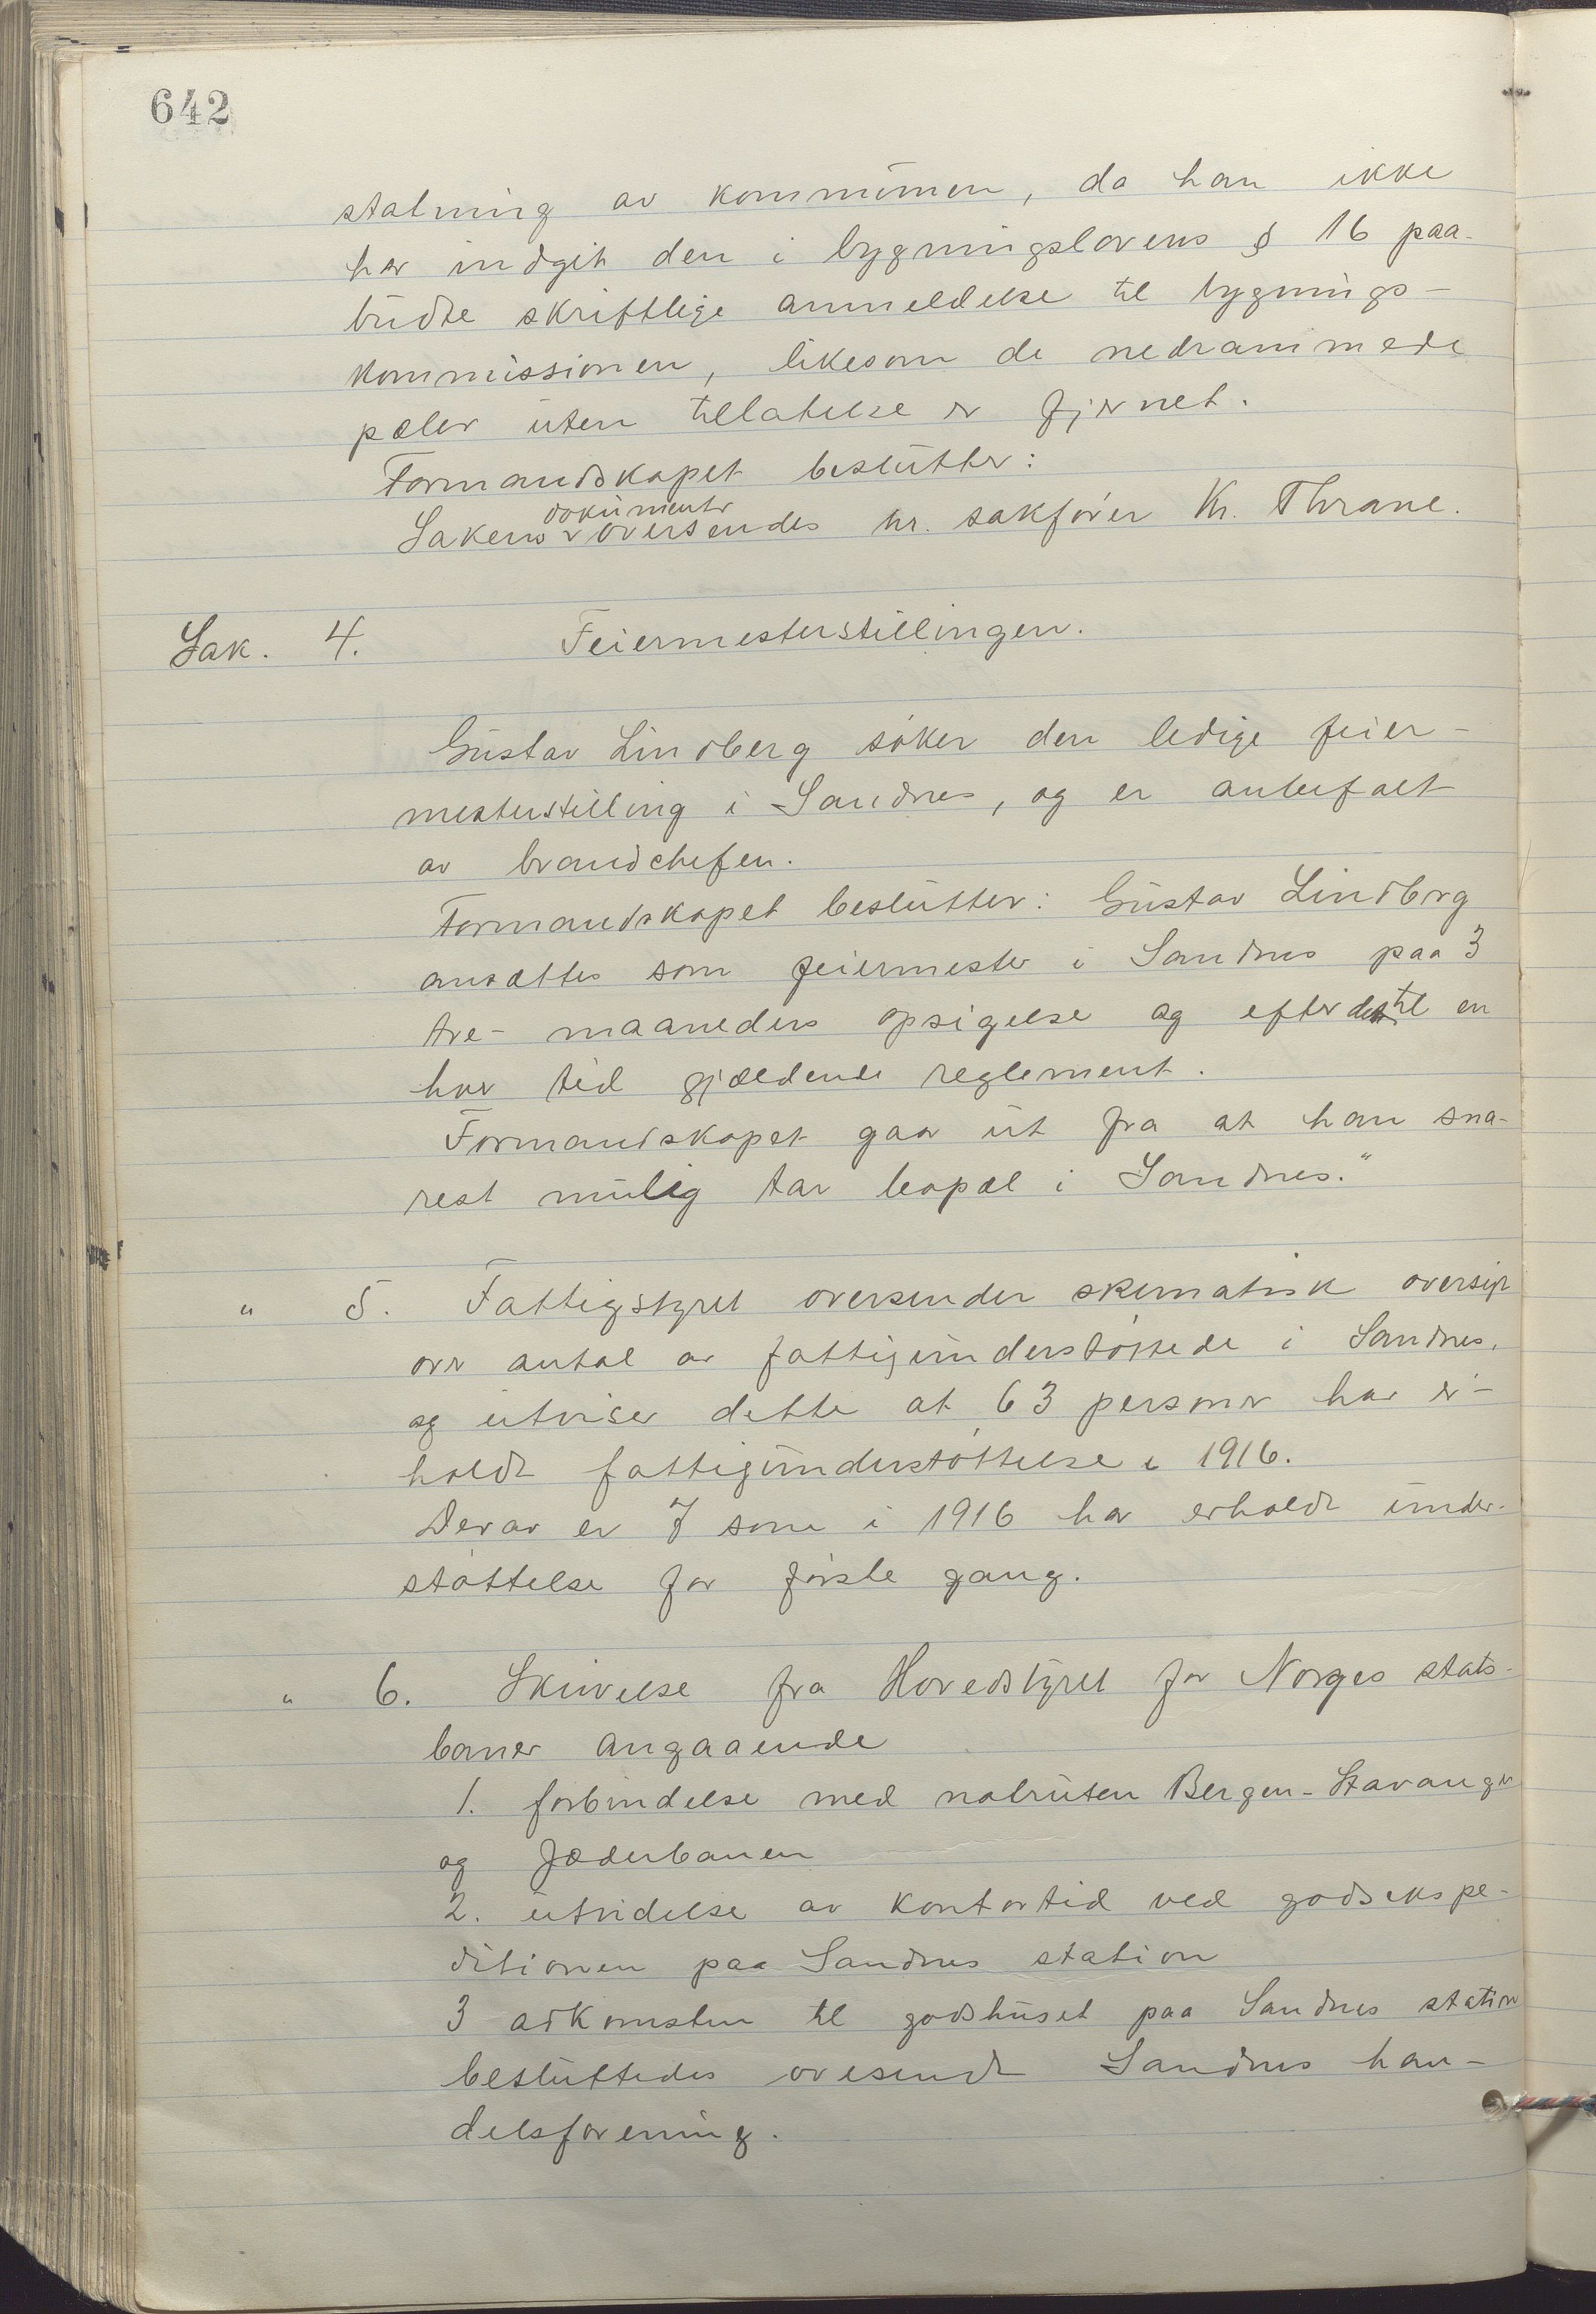 642
stalning av kommunen, da han ikke
har indgit den i bygningslovens § 16 paa-
budte skriftlige anmeldelse til bygnings-
kommissionen, likesom de nedrammede
pæler uten tillatelse er fjernet.
Formandskapet beslutter:
dokumenter
Sakens oversendes hr. sakfører Kr. Thrane.
Sak. 4. Feiermesterstillingen.
Gustav Lindberg søker den ledige feier-
mesterstilling i Sandnes, og er anbefalt
av brandchefen.
Formandskapet beslutter: Gustav Lindberg
ansættes som feiermester i Sandnes paa 3
tre- maaneders opsigelse og efter det til en
hver tid gjældende reglement.
Formandskapet gaar ut fra at han sna-
rest mulig tar bopæl i Sandnes."
" 5. Fattigstyret oversender skematisk oversigt
over antal av fattigunderstøttede i Sandnes,
og utviser dette at 63 personer har er-
holdt fattigunderstøttelse i 1916.
Derav er 7 som i 1916 har erholdt under-
støttelse for første gang.
" 6. Skrivelse fra Hovedstyret for Norges stats-
baner angaaende
1. forbindelse med natruten Bergen-Stavanger
og Jæderbanen
2. utvidelse av kontortid ved godsekspe-
ditionen paa Sandnes station
3 adkomsten til godshuset paa Sandnes station
besluttedes oversendt Sandnes han-
delsforening.